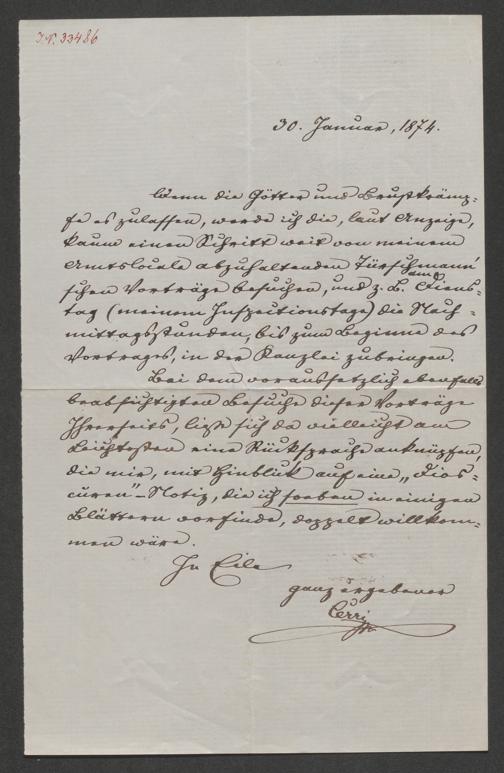 I.N. 33486
30. Januar, 1874.
Wenn die Götter und Brustkrämp-
fe es zulassen, werde ich die, laut Anzeige,
kaum einen Schritt weit von meinem
Amtslocale abzuhaltenden Türschmann'
schen Vorträge besuchen, und z. B. am Diens-
tag (meinem Inspectionstage) die Nach-
mittagsstunden, bis zum Beginne des
Vortrages, in der Kanzlei zubringen.
Bei dem voraussetzlich ebenfalls
beabsichtigten Besuche dieser Vorträge
Ihrerseits, ließe sich da vielleicht am
Leichtesten eine Rücksprache anknüpfen,
die mir, mit Hinblick auf eine „Dios-
curen"-Notiz, die ich soeben in einigen
Blättern vorfinde, doppelt willkom-
men wäre.
In Eile
ganz ergebener
Cerri